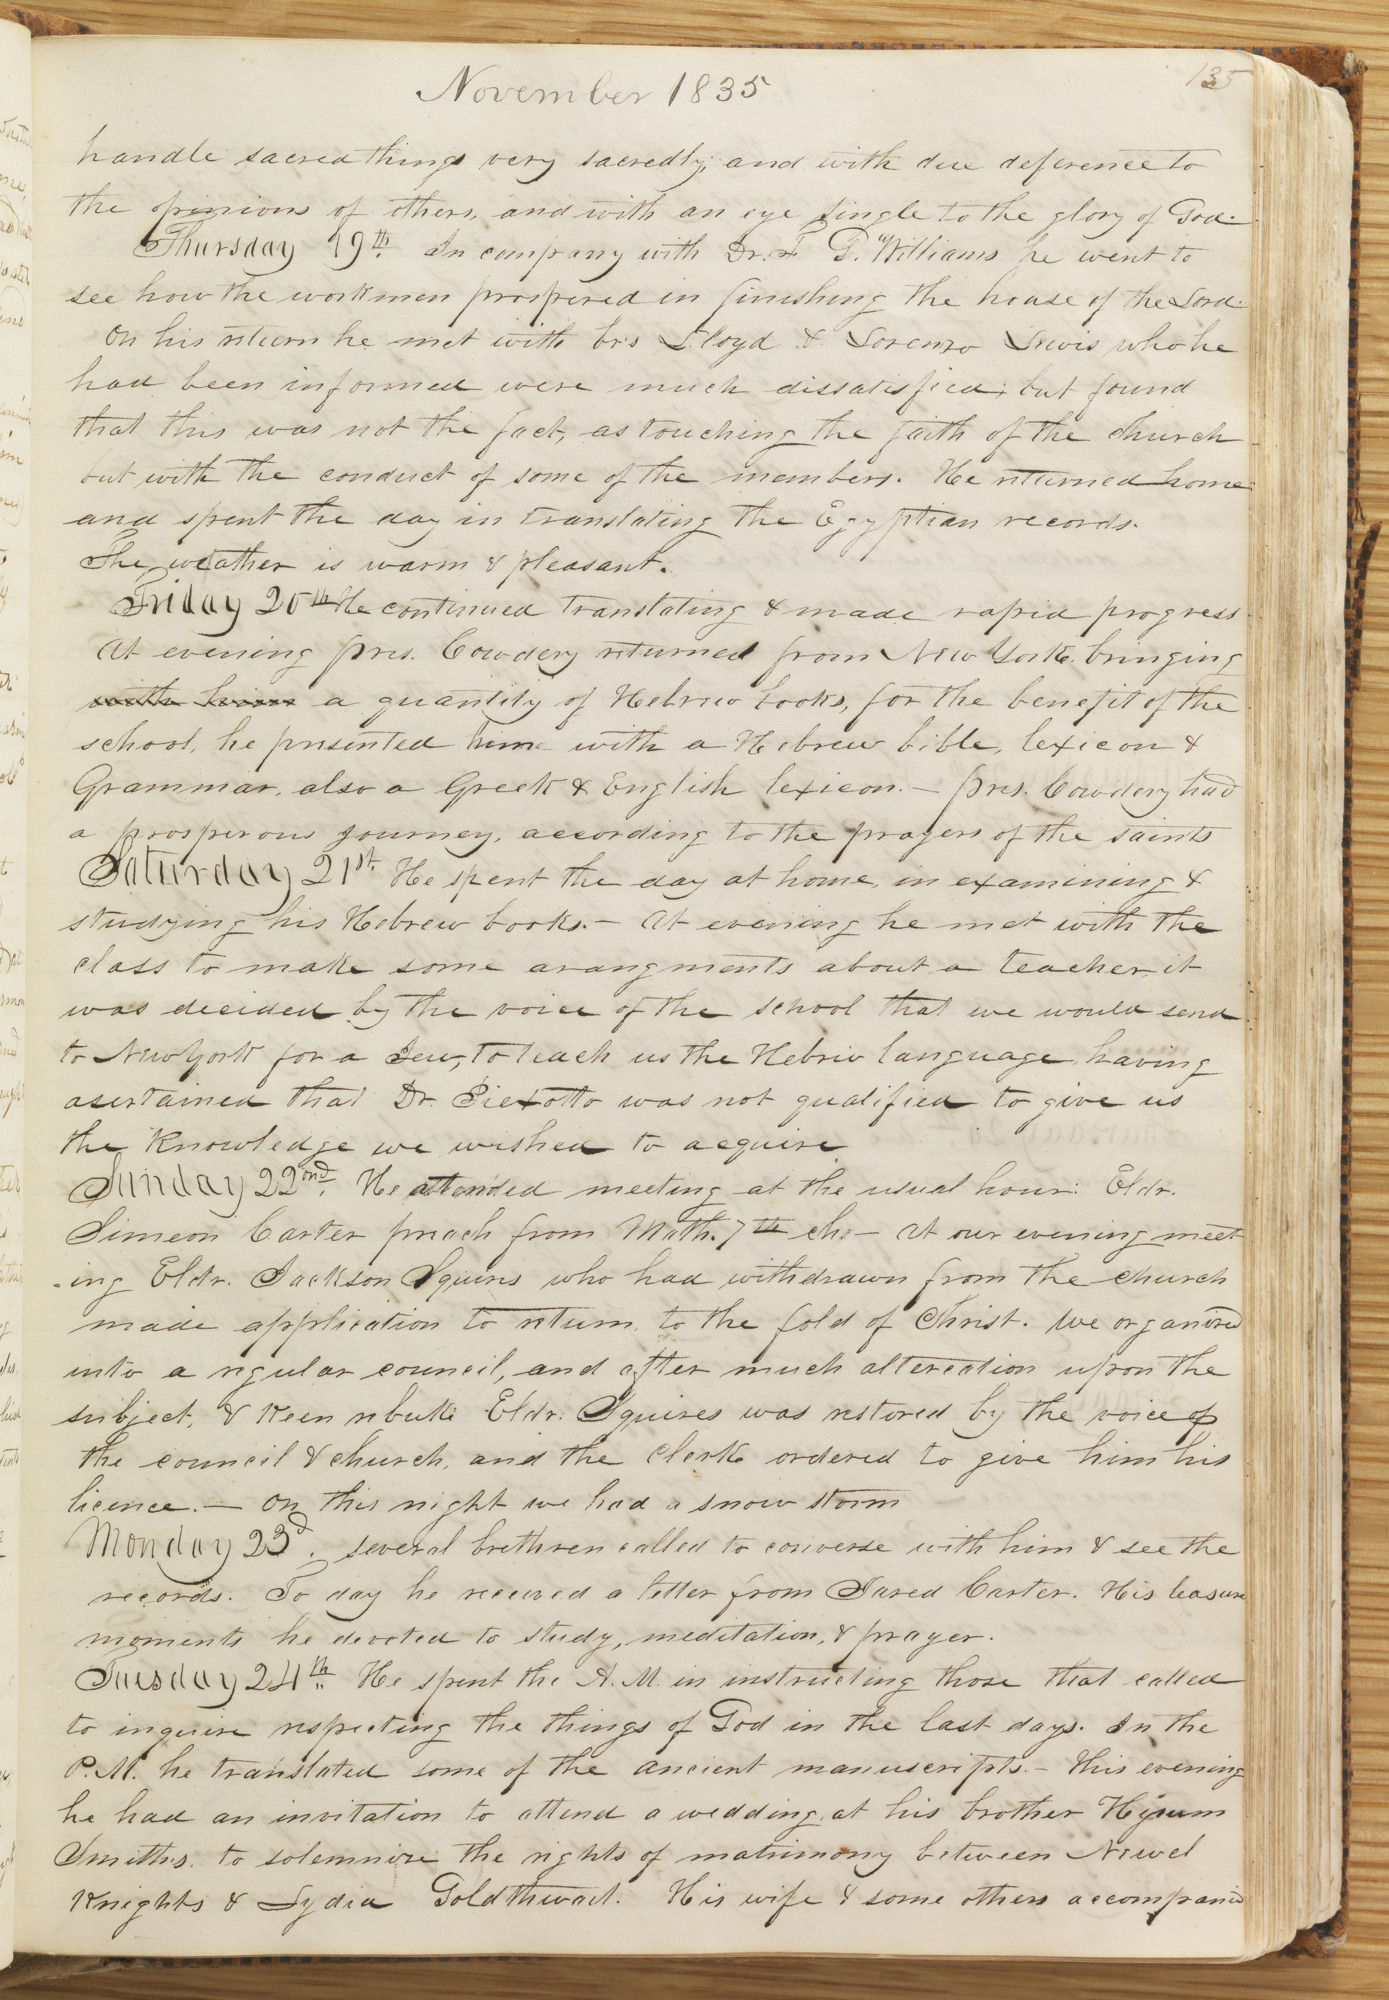 November 1835
135
handle sacred things very sacredly, and with due deference to
the opinions of others, and with an eye single to the glory of God.
Thursday 19th. In company with Dr. F. G. Williams he went to
see how the workmen prospered in finishing the house of the Lord.
On his return he met with brs Lloyd & Lorenzo Lewis who he
had been informed were much dissatisfied; but found
that this was not the fact, as touching the faith of the church
but with the conduct of some of the members. He returned home
and spent the day in translating the Egyptian records.
The weather is warm & pleasant.
Friday 20th He continued translating & made rapid progress
At evening pres. Cowdery returned from New York, bringing
with him a quantity of Hebrew books, for the benefit of the
school, he presented him with a Hebrew bible, lexicon &
Grammar, also a Greek & English lexicon.— pres. Cowdery had
a prosperous journey, according to the prayers of the saints
Saturday 21st. He spent the day at home, in examining &
studying his Hebrew books.— At evening he met with the
class to make some arangments about a teacher it
was decided by the voice of the school that we would send
to New York for a Jew, to teach us the Hebrew language, having
asertained that Dr. Piexotto was not qualified to give us
the knowledge we wished to acquire
Sunday 22ond. He attended meeting at the usual hour: Eldr.
Simeon Carter preach from Math. 7th ch.— At our evening meet
-ing Eldr. Jackson Squires who had withdrawn from the church
made application to return, to the fold of Christ. We organized
into a regular council, and after much altercation upon the
subject, & keen rebuke Eldr. Squires was restored by the voice of
the council & church, and the clerk ordered to give him his
licence.— On this night we had a snow storm
Monday 23d. several brethren called to converse with him & see the
records. To day he received a letter from Jared Carter. His leasure
moments he devoted to study, meditation, & prayer.
Tuesday 24th. He spent the A.M. in instructing those that called
to inquire respecting the things of God in the last days. In the
P.M. he translated some of the ancient manuscripts.— This evening
he had an invitation to attend a wedding at his brother Hyrum
Smith's. to solemnize the rights of matrimony between Newel
Knights & Lydia Goldthwait. His wife & some others accompanied